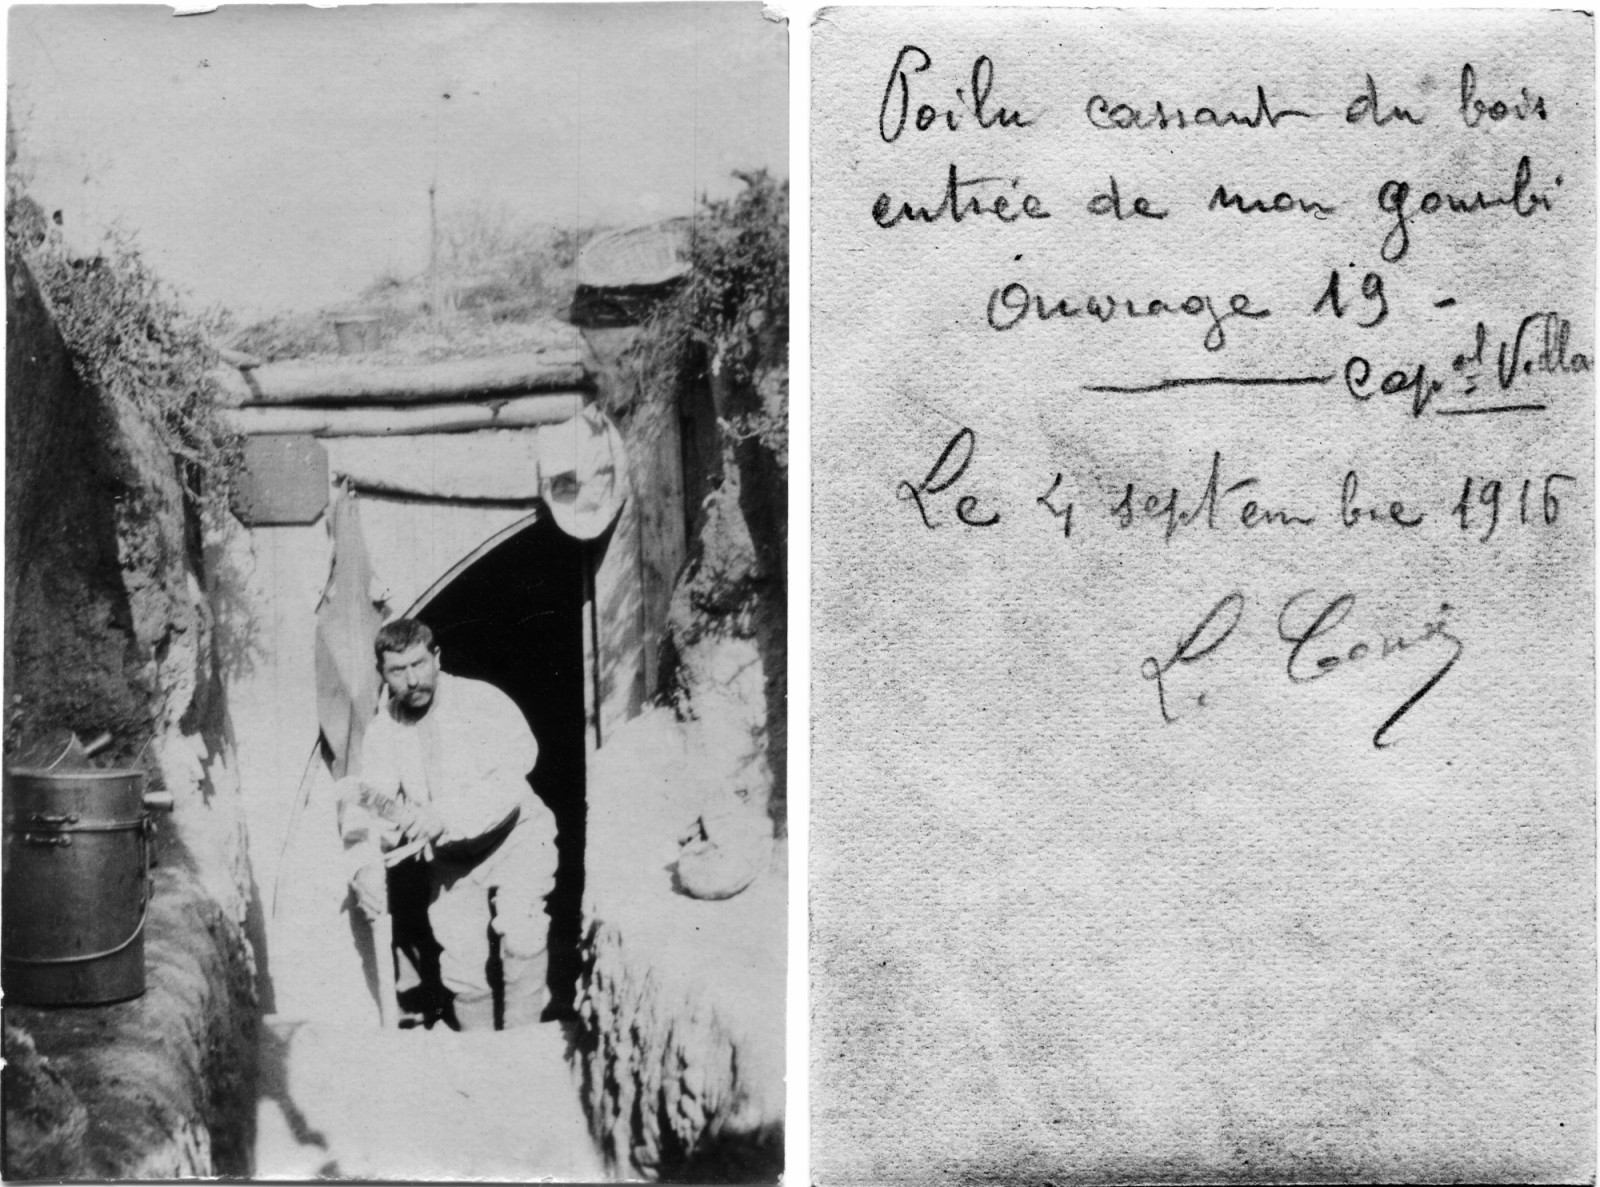 Poilu cassant du bois
entrée de mon gourbi
Ouvrage 19 -
Cap.al Villa
Le 4 septembre 1916
L.